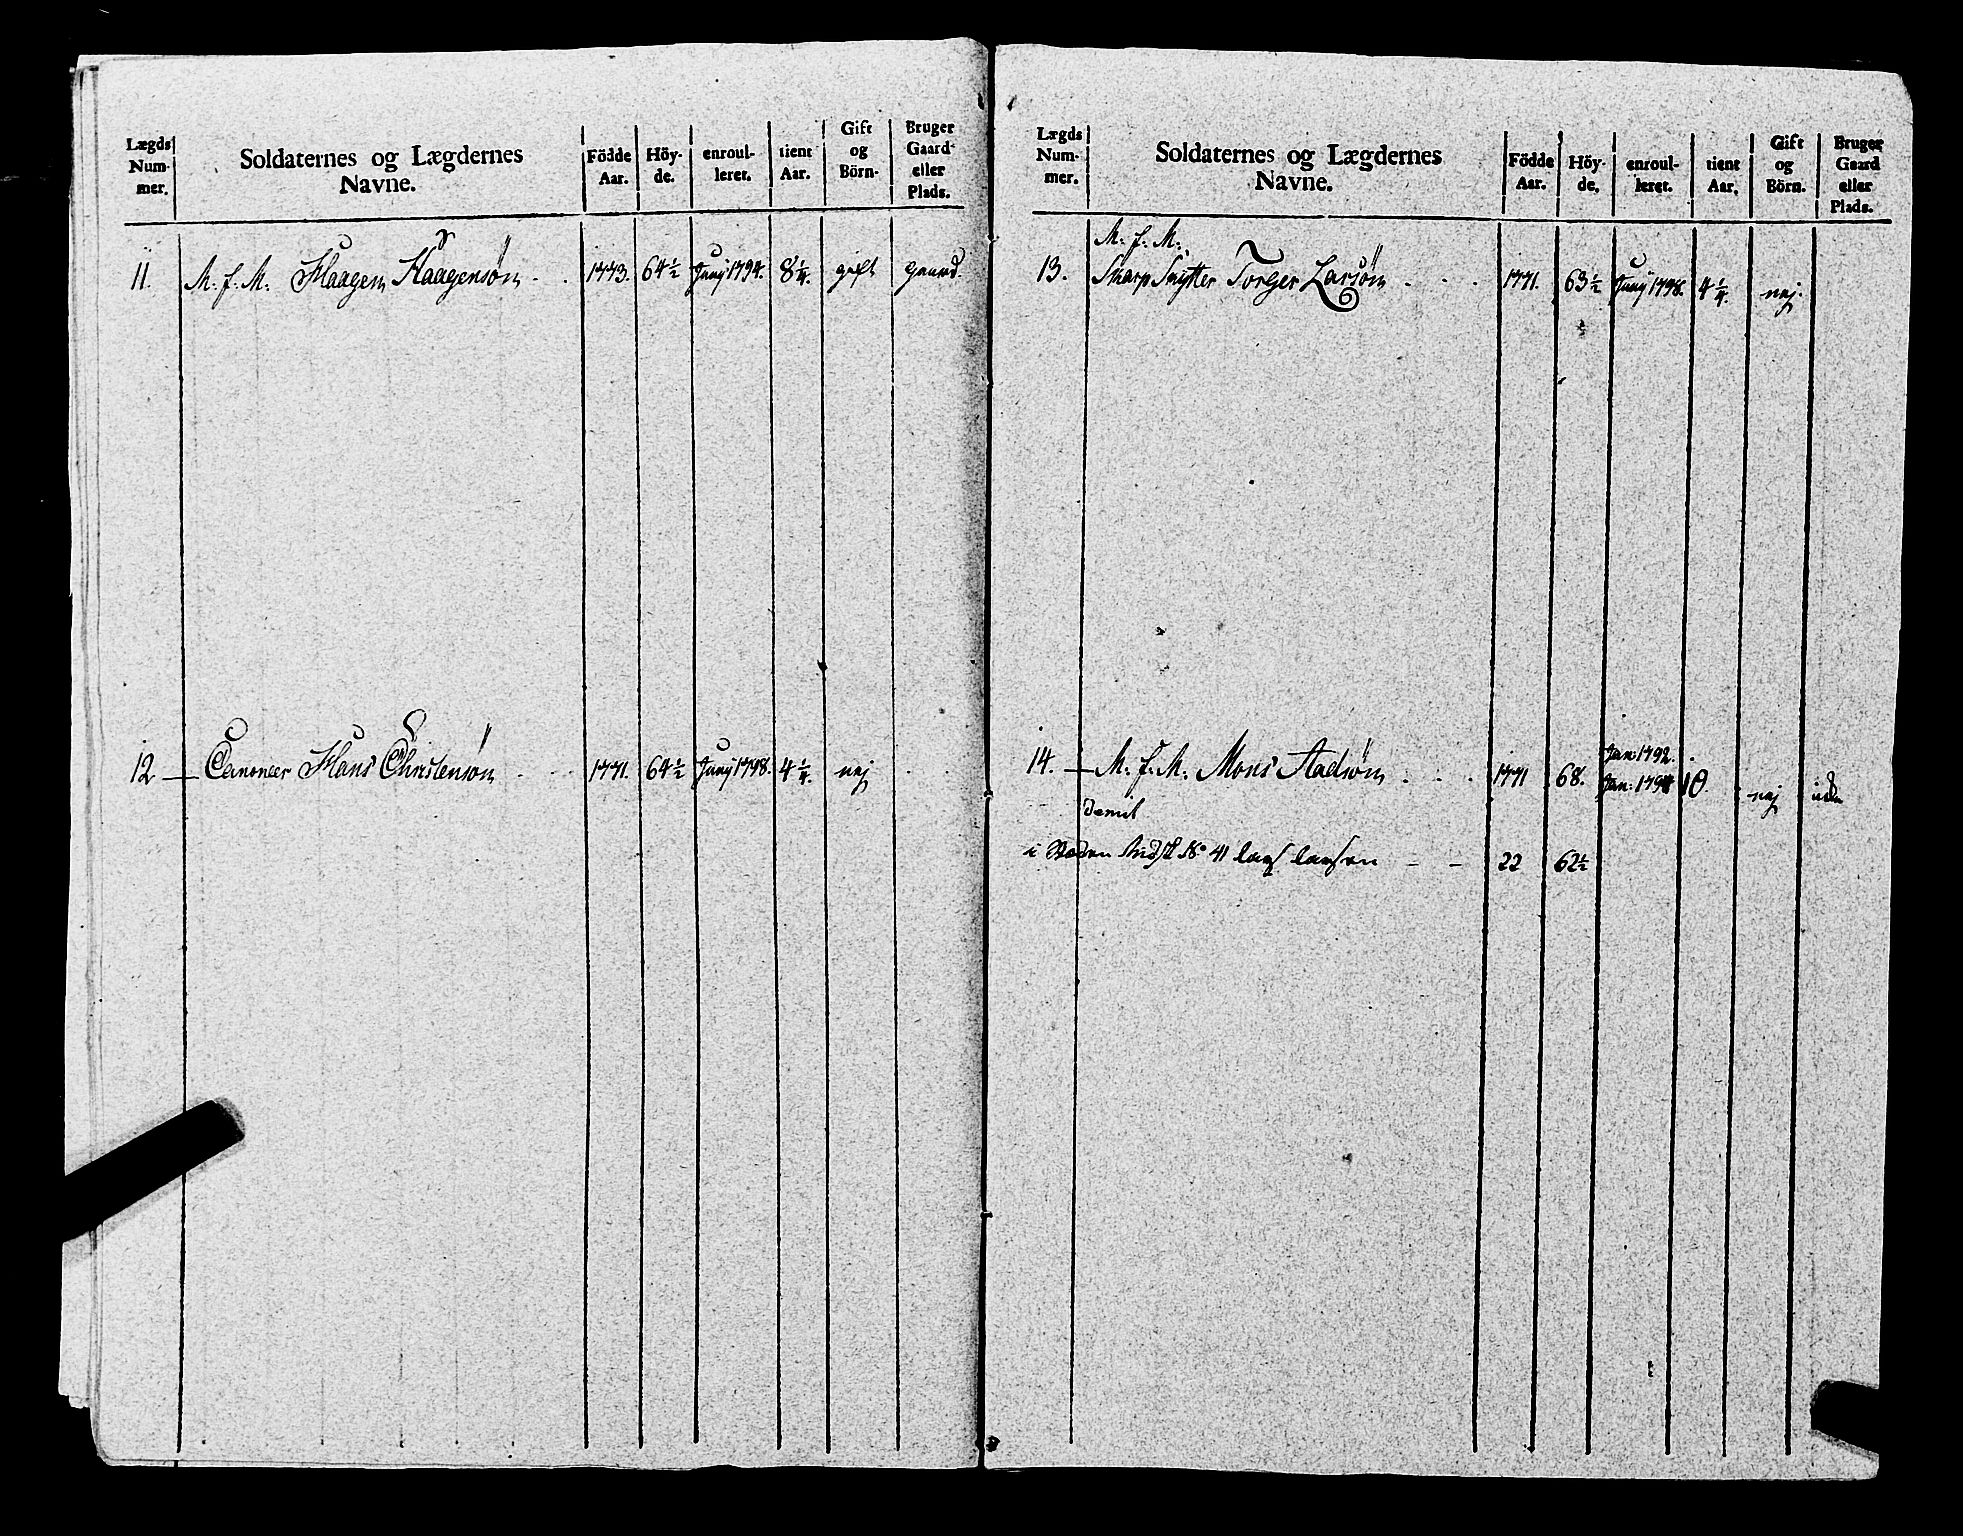 Lægds Num- mer. | Soldaternes og Lægdernes Navne. | Födde Aar. | Höy- de. | enroul- leret. | tient Aar. | Gift og Börn- | Bruger Gaard- eller Plads.
11. M. f. M. Haagen Haagensøn . . 1773. 64 1/2 Junj 1794. 8 1/4. gift gaard.
12 — Canoneer Hans Christensøn . . . 1771. 64 1/2 Junj 1798. 4 1/4. nej . .
Lægds Num- mer. | Soldaternes og Lægdernes Navne. | Födde Aar. | Höy- de. | enroul- leret. | tient Aar. | Gift og Börn. | Bruger Gaard eller Plads.
M. f. M.
13. Skarp Skytter Torger Larsøn . . . 1771. 63 1/2 Junj 1798. 4 1/4. nej.
Jan: 1792.
14. — M. f. M. Mons Aadsøn . . . 1771 68. Jan: 1794 10. nej
demit
i Steden No 41 Lars Larsen - - 22 62 1/2